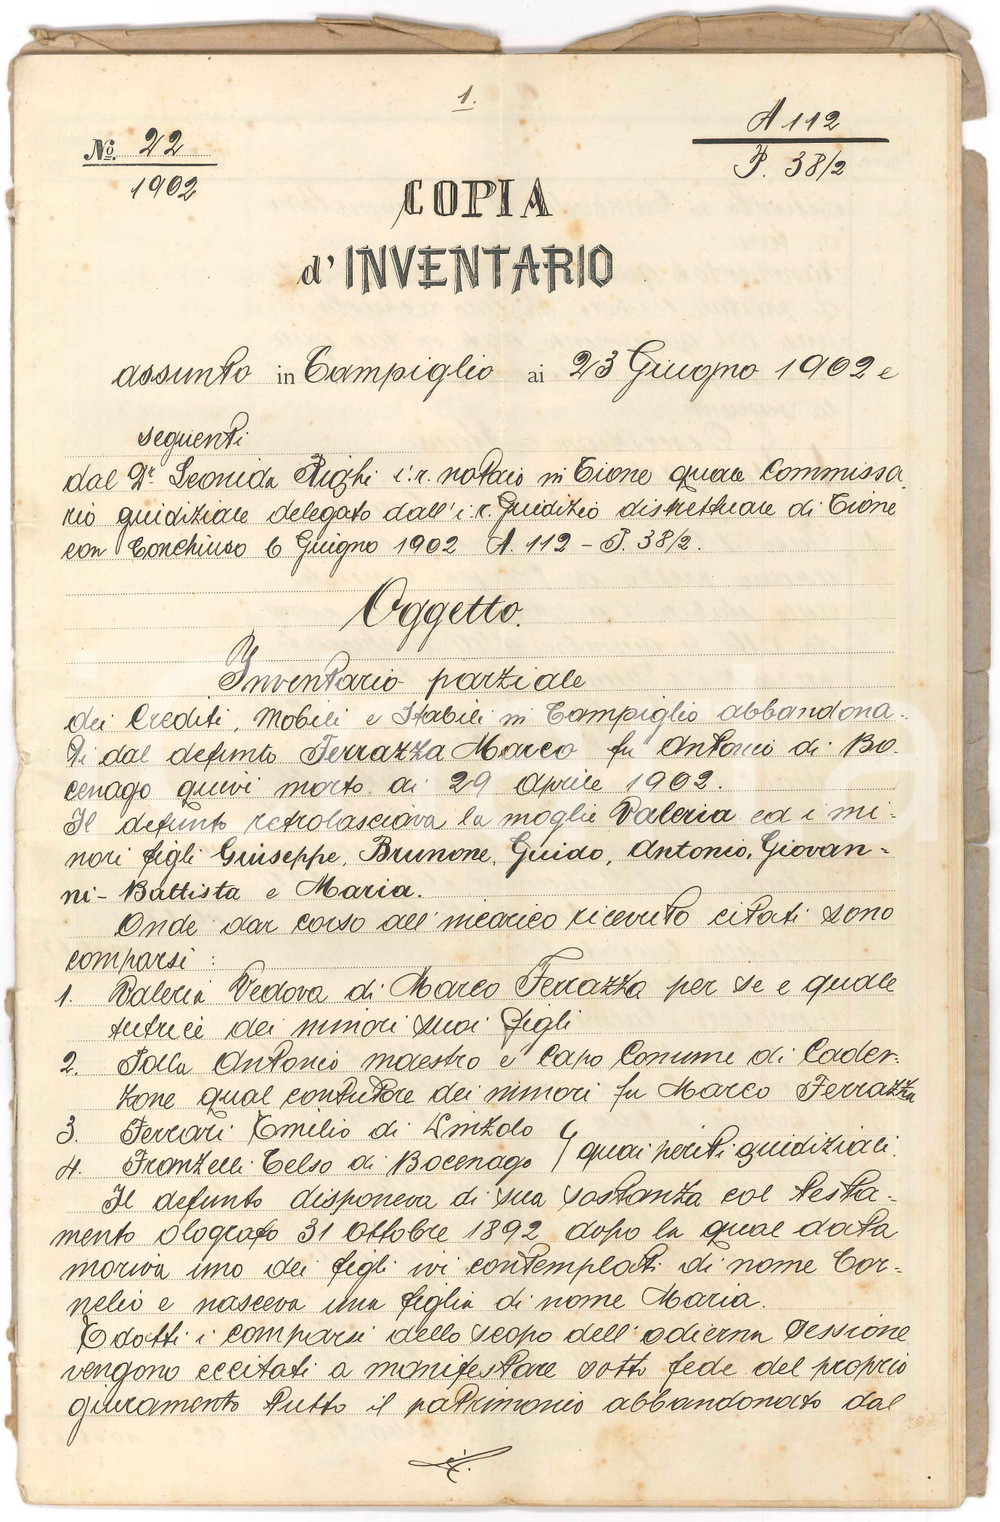 1.
No. 22
1902
A 112
P. 38/2
COPIA
d'INVENTARIO
assunto in Campiglio ai 23 Giugno 1902 e
seguenti
dal Dr. Leonida Righi i. r. notaio in Tione quale Commissa
rio giudiziale delegato dall' i. r. Giudizio distrettuale di Tione
con Conchiuso 6 Giugno 1902 A. 112 - P. 38/2.
Oggetto.
Inventario parziale
dei Crediti, Mobili e Stabili in Campiglio abbandona-
ti dal defunto Ferrazza Marco fu Antonio di Bo-
cenago quivi morto ai 29 Aprile 1902.
Il defunto retrolasciava la moglie Valeria ed i mi-
nori figli Guiseppe, Brunone, Guido, Antonio, Giovan-
ni-Battista e Maria.
Onde dar corso all' incarico ricevuto citati sono
comparsi :
1. Valeria Vedova di Marco Ferrazza per se e quale
tutrice dei minori suoi figli
2. Polla Antonio maestro e Capo Comune di Cader-
zone qual contutore dei minori fu Marco Ferrazza
3. Ferrari Emilio di Pinzolo
4. Franzelli Celso di Bocenago } quai periti giudiziali.
Il defunto disponeva di sua sostanza col testa-
mento olografo 31 Ottobre 1892 dopo la qual data
moriva uno dei figli ivi contemplati di nome Cor-
nelio e nasceva una figlia di nome Maria.
Edotti i comparsi dello scopo dell' odierna Sessione
vengono eccitati a manifestare sotto fede del proprio
giuramento tutto il patrimonio abbandonato dal